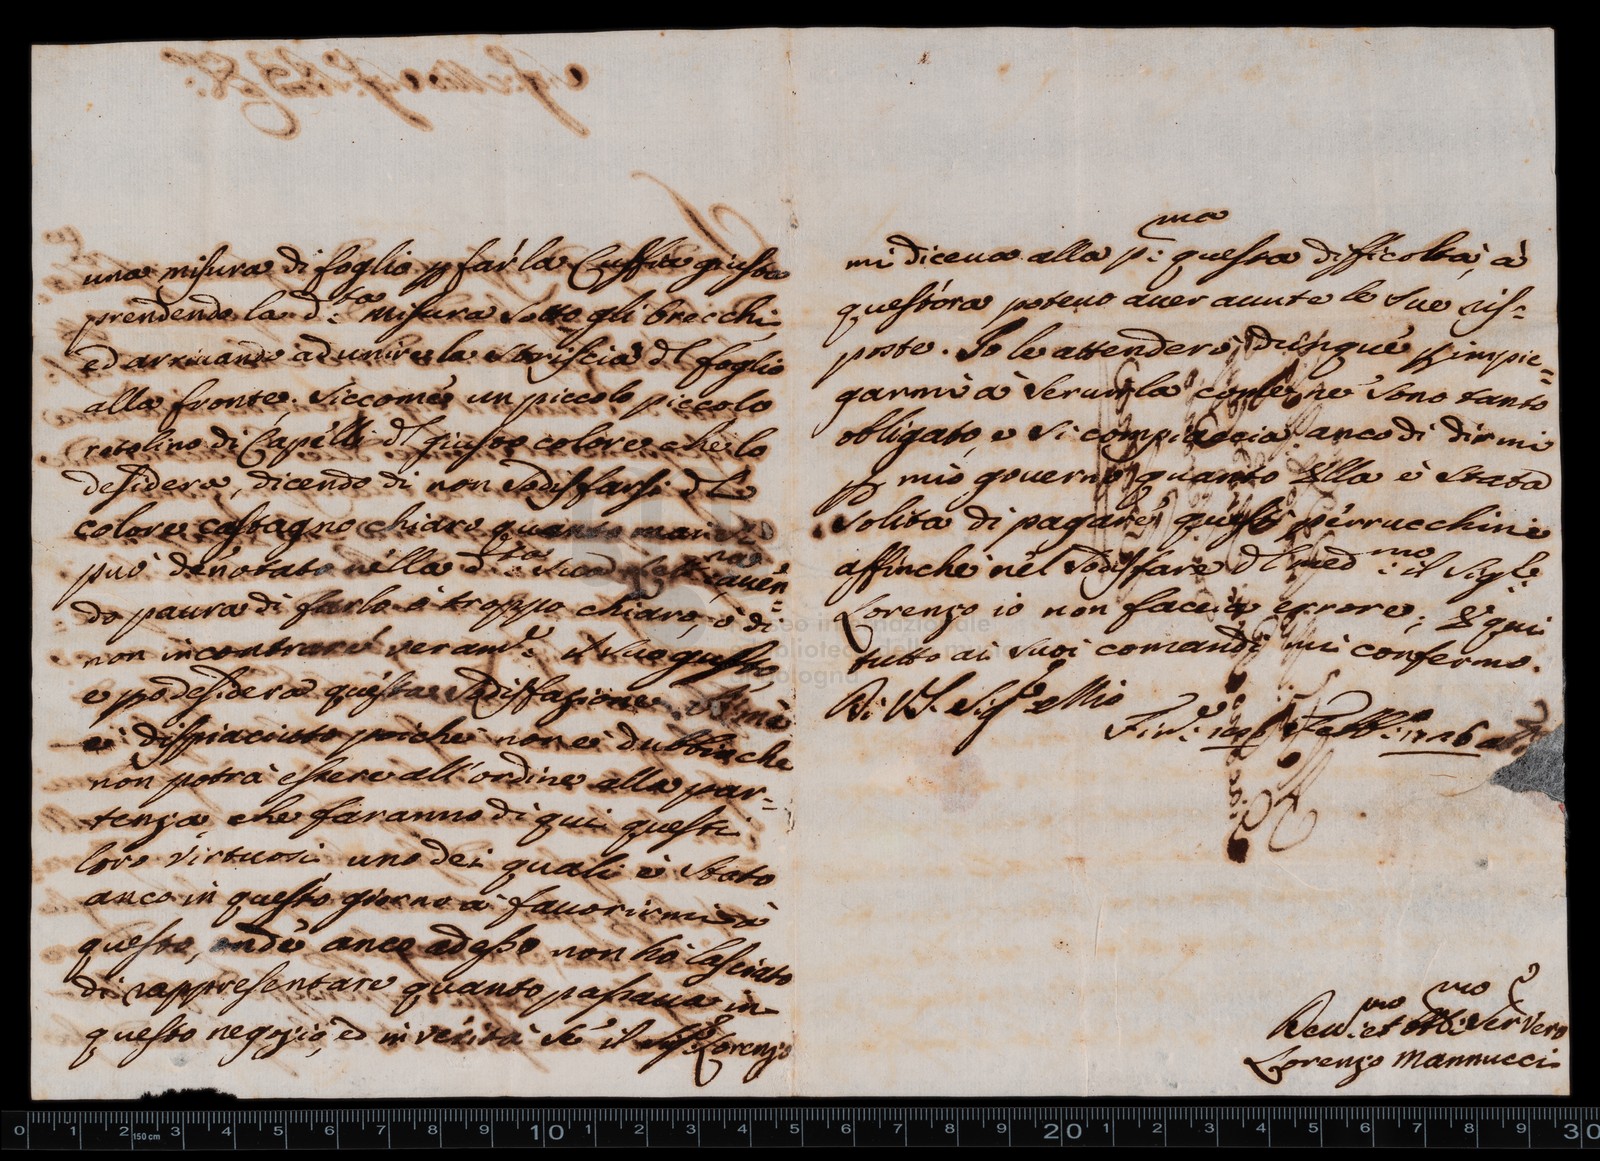 una misura di foglio p far la Cuffia giusta
prendendo la d:ta misura sotto gli orecchi
ed arrivando ad unire la striscia dl foglio
alla fronte, siccome un piccolo piccolo
rotolino di Capelli dl giusto colore che lo
desidera, dicendo di non sodisfarsi dl
colore castagno chiaro quanto mai
può denotato nella d:ta sua aven=
do paura di farlo ò troppo chiaro, ò di
non incontrare veram:e il suo gusto,
e po desidera questa sodisfazione
è dispiaciuto poiche non è dubbio che
non potrà essere all'ordine alla par=
tenza, che faranno di qui questi
loro Virtuosi uno dei quali è stato
anco in questo giorno à favorirmi à
questo, onde anco adesso non hà lasciato
di rappresentare quanto passava in
questo negozio, ed in verità se il Sig:e Lorenzo
mi diceva alla p:ma questa difficoltà, à
quest'ora potevo aver avute le sue ris=
poste. Io le attenderò dunque p impie=
garmi à servirla come ne sono tanto
obligato, e si compiaccia anco di dirmi
p mio governo quanto Ella è stata
solita di pagare questi perrucchini
affinche nel sodisfare dl med:mo il Sig:e
Lorenzo io non faccia errore; E qui
tutto ai suoi comandi mi confermo.
Di V.S. Sig:e Mio
Fir:e Febb:o 1726 ab
Dev:mo et Obb:mo Ser:e Vero
Lorenzo Mannucci
museo internazionale
e biblioteca della musica
di bologna
0 1 2 150 cm 3 4 5 6 7 8 9 10 1 2 3 4 5 6 7 8 9 20 1 2 3 4 5 6 7 8 9 30